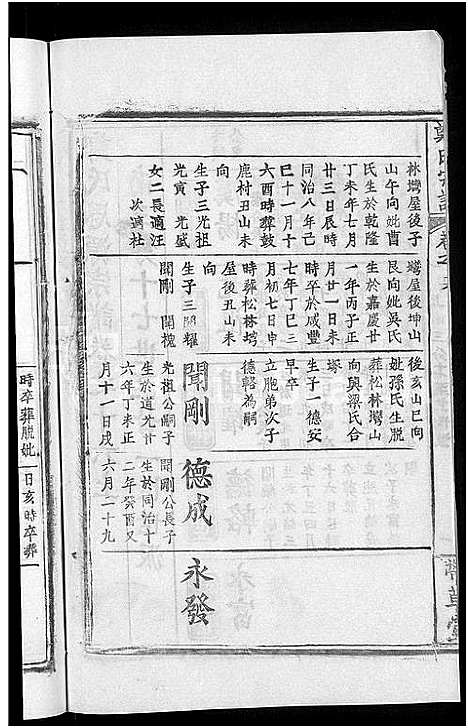 鄭氏宗譜
林塆屋後子
山午向妣曹
氏生於乾隆
丁未年七月
廿三日辰時
同治八年己
巳十一月十
六酉時葬鼓
鹿村丑山未
向
生子三光祖
光寅 光盛
女二長適汪
次適杜
塆屋後坤山
艮向妣吳氏
生於嘉慶廿
一年丙子正
月廿一日未
時卒於咸豐
七年丁巳三
月初七日申
時葬松林塆
屋後丑山未
向
生子三 聞耀
聞剛 聞槐
後亥山巳向
妣孫氏生脫
葬松林塆山
向與梁氏合
塚
生子一德安
早卒
立胞弟次子
德輅為嗣
聞剛
光祖公嗣子
生於道光廿
六年丁未正
月十一日戌
德成
聞剛公長子
生於同治十
二年癸酉又
六月二十九
永發
時卒葬脫妣
日亥時卒葬